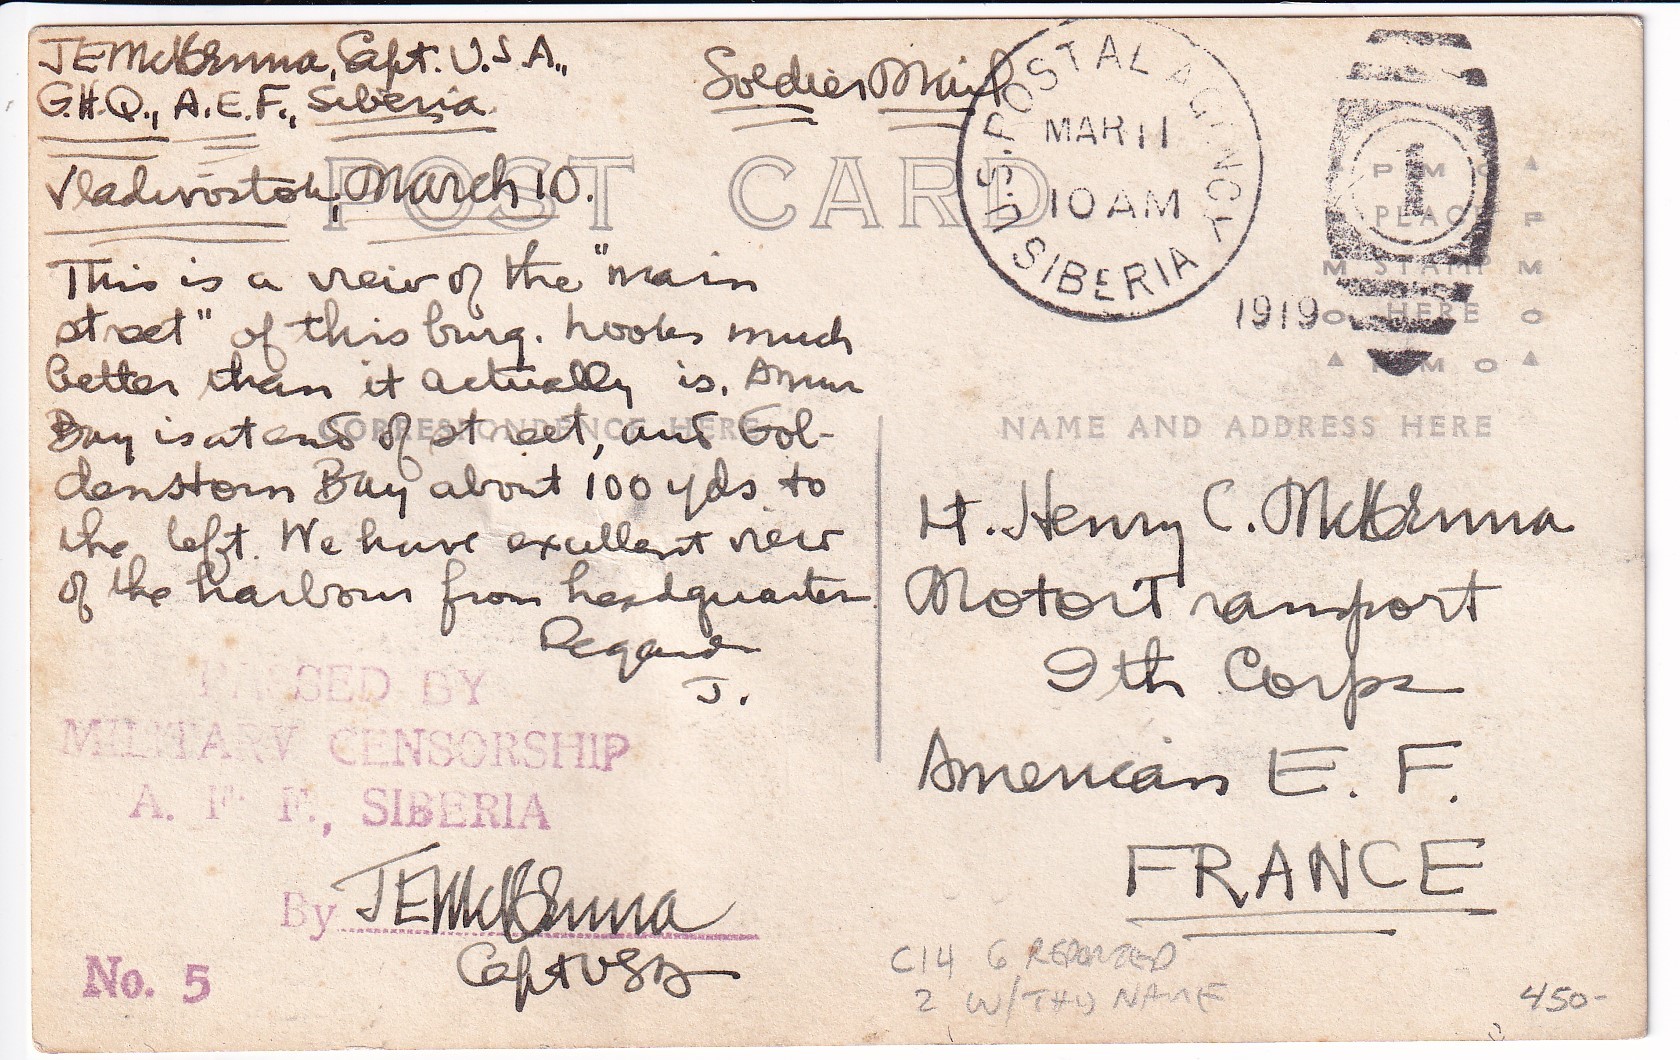 JEMcKenna, Capt. U.S.A.,
G.H.Q., A.E.F., Siberia
Soldier Mail
Vladivostok, March 10.
POST CARD
U.S. POSTAL AGENCY
MAR 11
10 AM
SIBERIA
1919
1
PLACE
STAMP
HERE
This is a view of the "main
street" of this burg. Looks much
better than it actually is. Amur
Bay is at end of street, and Gol-
denhorn Bay about 100 yds to
the left. We have excellent view
of the harbour from headquarters.
Regards
J.
CORRESPONDENCE HERE
NAME AND ADDRESS HERE
Lt. Henry C. McKenna
Motor Transport
9th Corps
American E. F.
FRANCE
PASSED BY
MILITARY CENSORSHIP
A. E. F., SIBERIA
By JEMcKenna
Capt USA
No. 5
C14 6 REPORTED
2 W/THIS NAME
450-